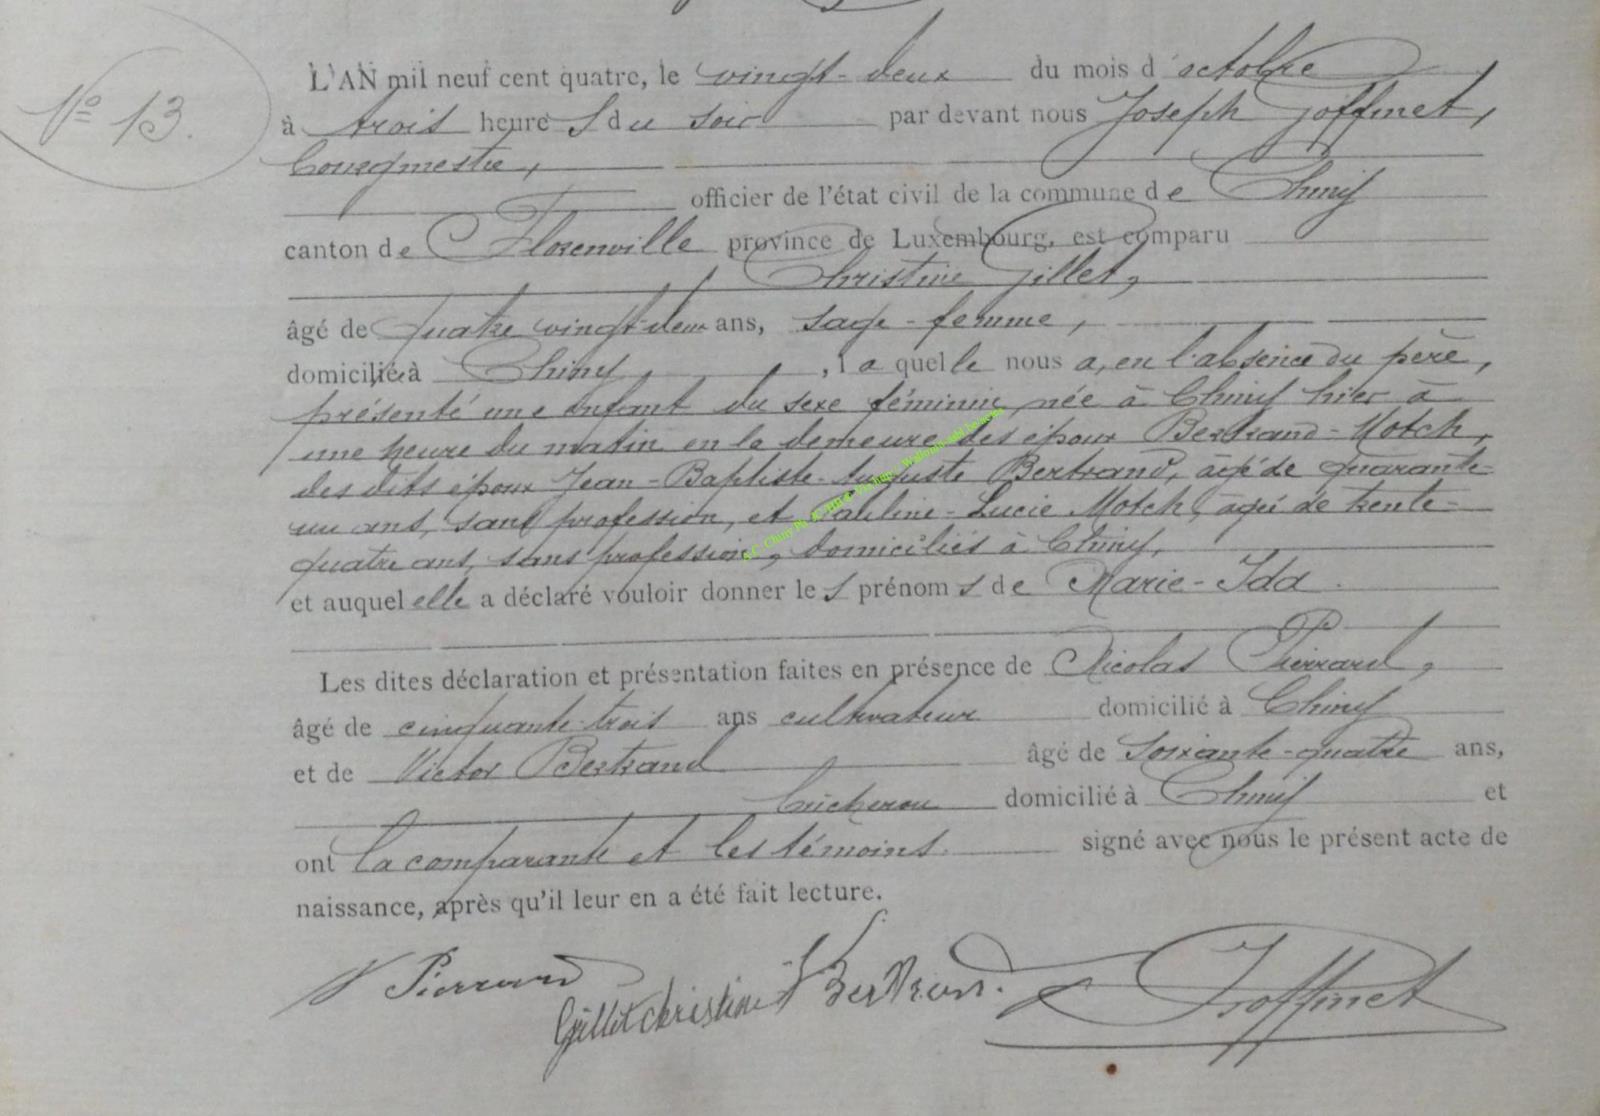 N° 13.
L'AN mil neuf cent quatre, le vingt-deux du mois d'octobre
à trois heures du soir par devant nous Joseph Goffinet,
bourgmestre,
officier de l'état civil de la commune de Chiny
canton de Florenville province de Luxembourg, est comparu
Christine Gillet,
âgé de quatre vingt-deux ans, sage-femme,
domiciliée à Chiny, laquelle nous a, en l'absence du père,
présenté une enfant du sexe féminin, née à Chiny hier à
une heure du matin en la demeure des époux Bertrand-Motch,
des dits époux Jean-Baptiste-Auguste Bertrand, âgé de quarante-
un ans, sans profession, et Pauline-Lucie Motch, agée de trente-
quatre ans, sans profession, domiciliés à Chiny,
et auquel elle a déclaré vouloir donner les prénoms de Marie-Ida.
Les dites déclaration et présentation faites en présence de Nicolas Pierrard,
âgé de cinquante-trois ans cultivateur domicilié à Chiny
et de Victor Bertrand âgé de soixante-quatre ans,
bûcheron domicilié à Chiny et
ont la comparante et les témoins signé avec nous le présent acte de
naissance, après qu'il leur en a été fait lecture.
N Pierrard Gillet christine V Bertrand. J Goffinet